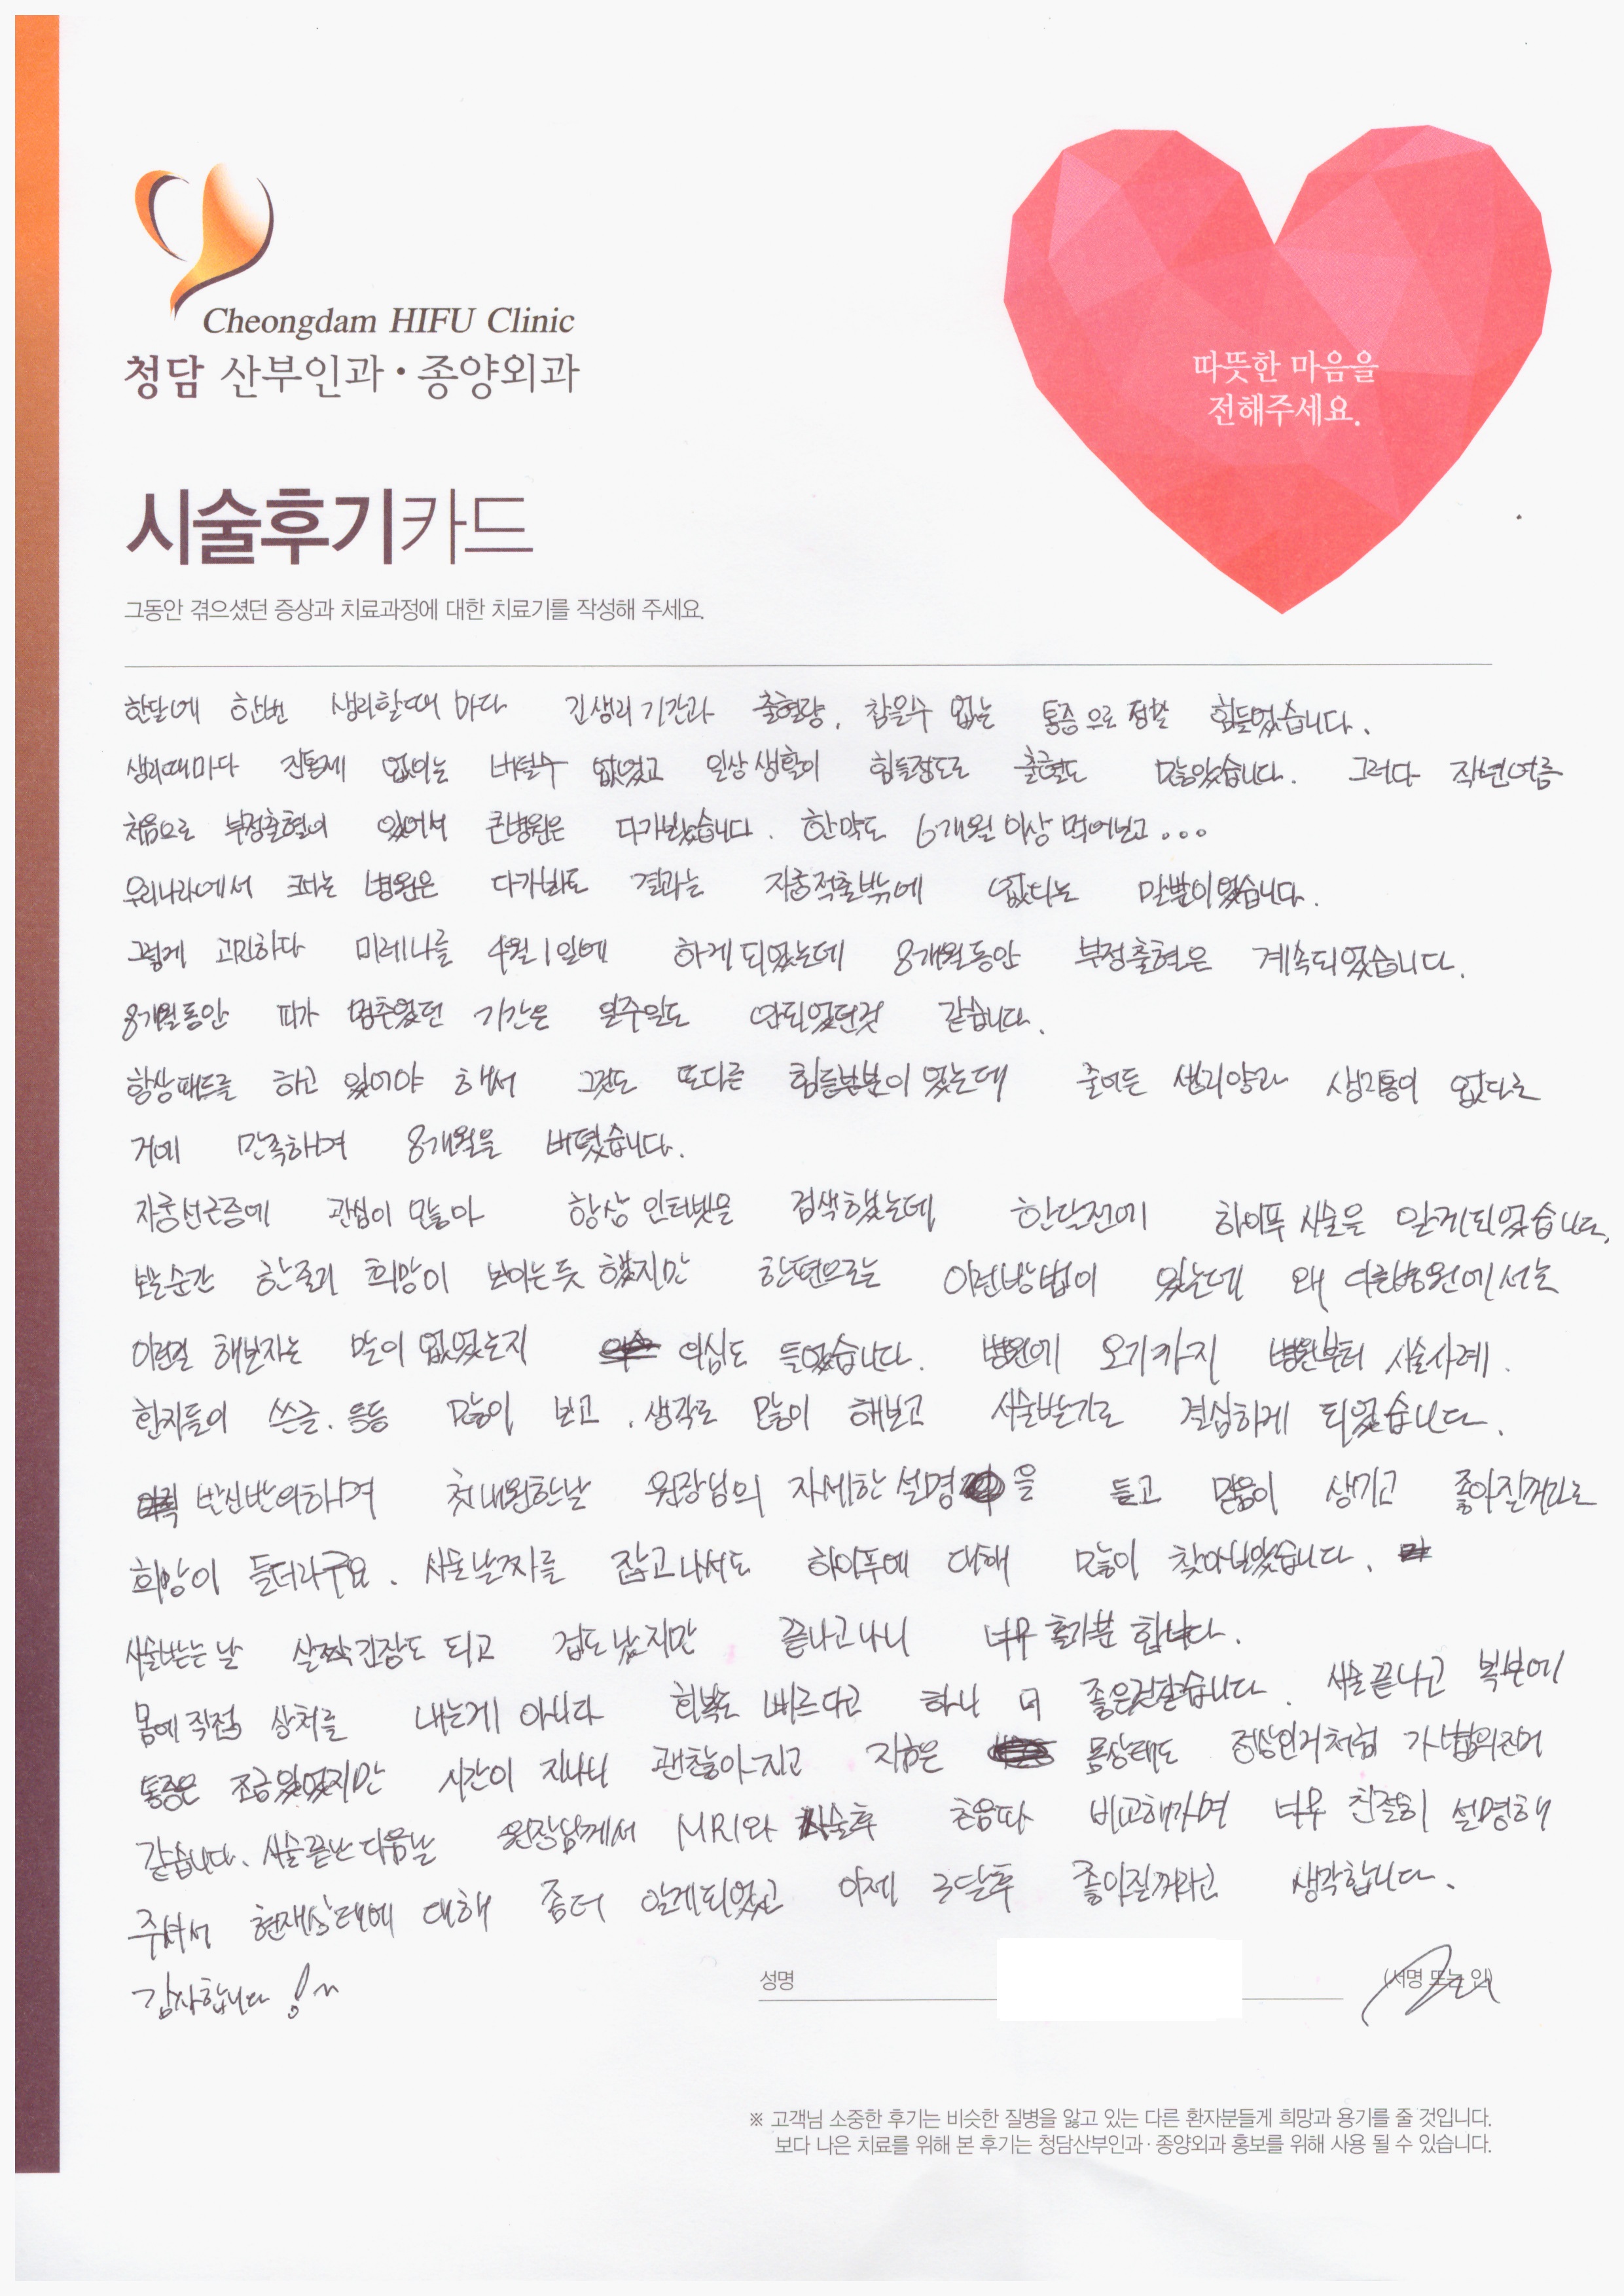 Cheongdam HIFU Clinic
청담 산부인과·종양외과
따뜻한 마음을
전해주세요.
시술후기카드
그동안 겪으셨던 증상과 치료과정에 대한 치료기를 작성해 주세요.
한달에 한번 생리할때 마다 긴생리기간과 출혈량, 참을수 없는 통증으로 정말 힘들었습니다.
생리때마다 진통제 없이는 버틸수 없었고 일상생활이 힘들정도로 출혈도 많았습니다. 그러다 작년여름
처음으로 부정출혈이 있어서 큰병원은 다가봤습니다. 한약도 6개월이상 먹어보고...
우리나라에서 크다는 병원은 다가봐도 결과는 자궁적출밖에 없다는 말뿐이었습니다.
그렇게 고민하다 미레나를 4월1일에 하게되었는데 8개월동안 부정출혈은 계속되었습니다.
8개월동안 피가 멈추었던 기간은 일주일도 안되었던것 같습니다.
항상패드를 하고 있어야 해서 그것도 또다른 힘들부분이었는데 줄어든 생리양과 생리통이 없다는
거에 만족하며 8개월을 버텼습니다.
자궁선근증에 관심이 많아 항상 인터넷을 검색했는데 한달전에 하이푸 시술을 알게되었습니다.
보는순간 한줄기 희망이 보이는듯 했지만 한편으로는 이런방법이 있는데 왜 다른병원에서는
이런걸 해보자는 말이 없었는지 의심도 들었습니다. 병원에 오기까지 병원부터 시술사례.
환자들이 쓴글. 등등 많이 보고, 생각도 많이 해보고 시술받기로 결심하게 되었습니다.
반신반의하며 첫내원한날 원장님의 자세한 설명을 듣고 믿음이 생기고 좋아질꺼라는
희망이 들더라구요. 시술날짜를 잡고나서도 하이푸에 대해 많이 찾아보았습니다.
시술받는날 살짝긴장도 되고 겁도났지만 끝나고나니 너무 홀가분 합니다.
몸에 직접 상처를 내는게 아니라 회복도 빠르다고 하니 더 좋은것같습니다. 시술끝나고 복부에
통증은 조금있었지만 시간이 지나니 괜찮아지고 지금은 몸상태도 정상인거처럼 가벼워진거
같습니다. 시술끝난 다음날 원장님께서 MRI와 시술후 초음파 비교해가며 너무 친절히 설명해
주셔서 현재상태에 대해 좀더 알게되었고 이제 3달후 좋아질꺼라고 생각합니다.
감사합니다!~
성명 (서명 또는 인)
※ 고객님 소중한 후기는 비슷한 질병을 앓고 있는 다른 환자분들게 희망과 용기를 줄 것입니다.
보다 나은 치료를 위해 본 후기는 청담산부인과·종양외과 홍보를 위해 사용 될 수 있습니다.